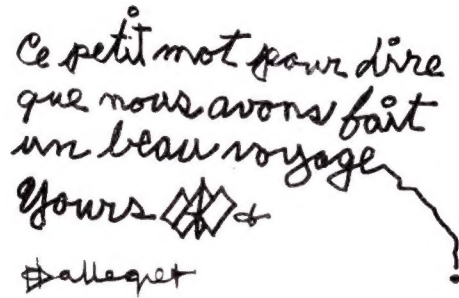 Ce petit mot pour dire
que nous avons fait
un beau voyage
Yours